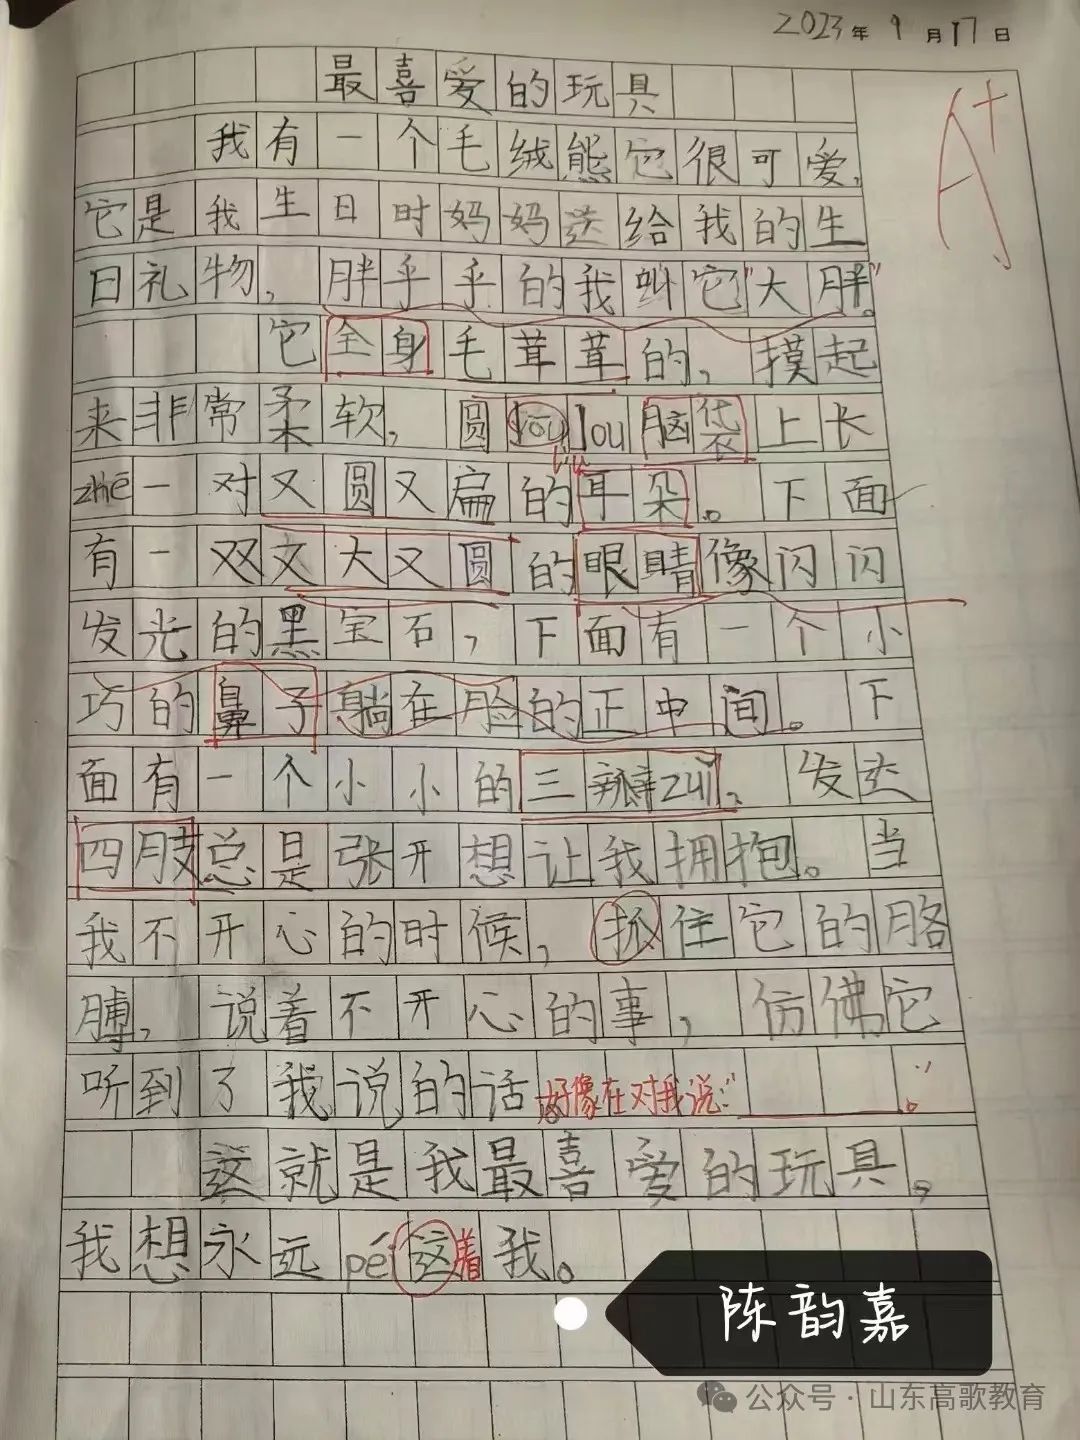 2023年9月17日
最喜爱的玩具
A+
我有一个毛绒熊它很可爱,
它是我生日时妈妈送给我的生
日礼物,胖乎乎的我叫它"大胖"。
它全身毛茸茸的,摸起
来非常柔软,圆lōulou脑袋上长
zhē一对又圆又扁的耳朵。下面
有一双文大又圆的眼睛像闪闪
发光的黑宝石,下面有一个小
巧的鼻子躺在脸的正中间。下
面有一个小小的三瓣zuǐ,发达
四肢总是张开想让我拥抱。当
我不开心的时候,抓住它的胳
膊,说着不开心的事,仿佛它
听到了我说的话好像在对我说:"。"
这就是我最喜爱的玩具,
我想永远pé这着我。
陈韵嘉
公众号·山东高歌教育